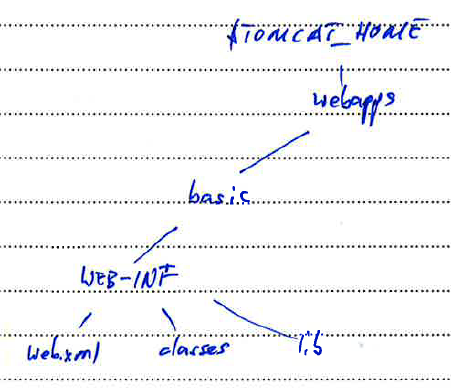 $TOMCAT_HOME
webapps
basic
WEB-INF
web.xml classes lib